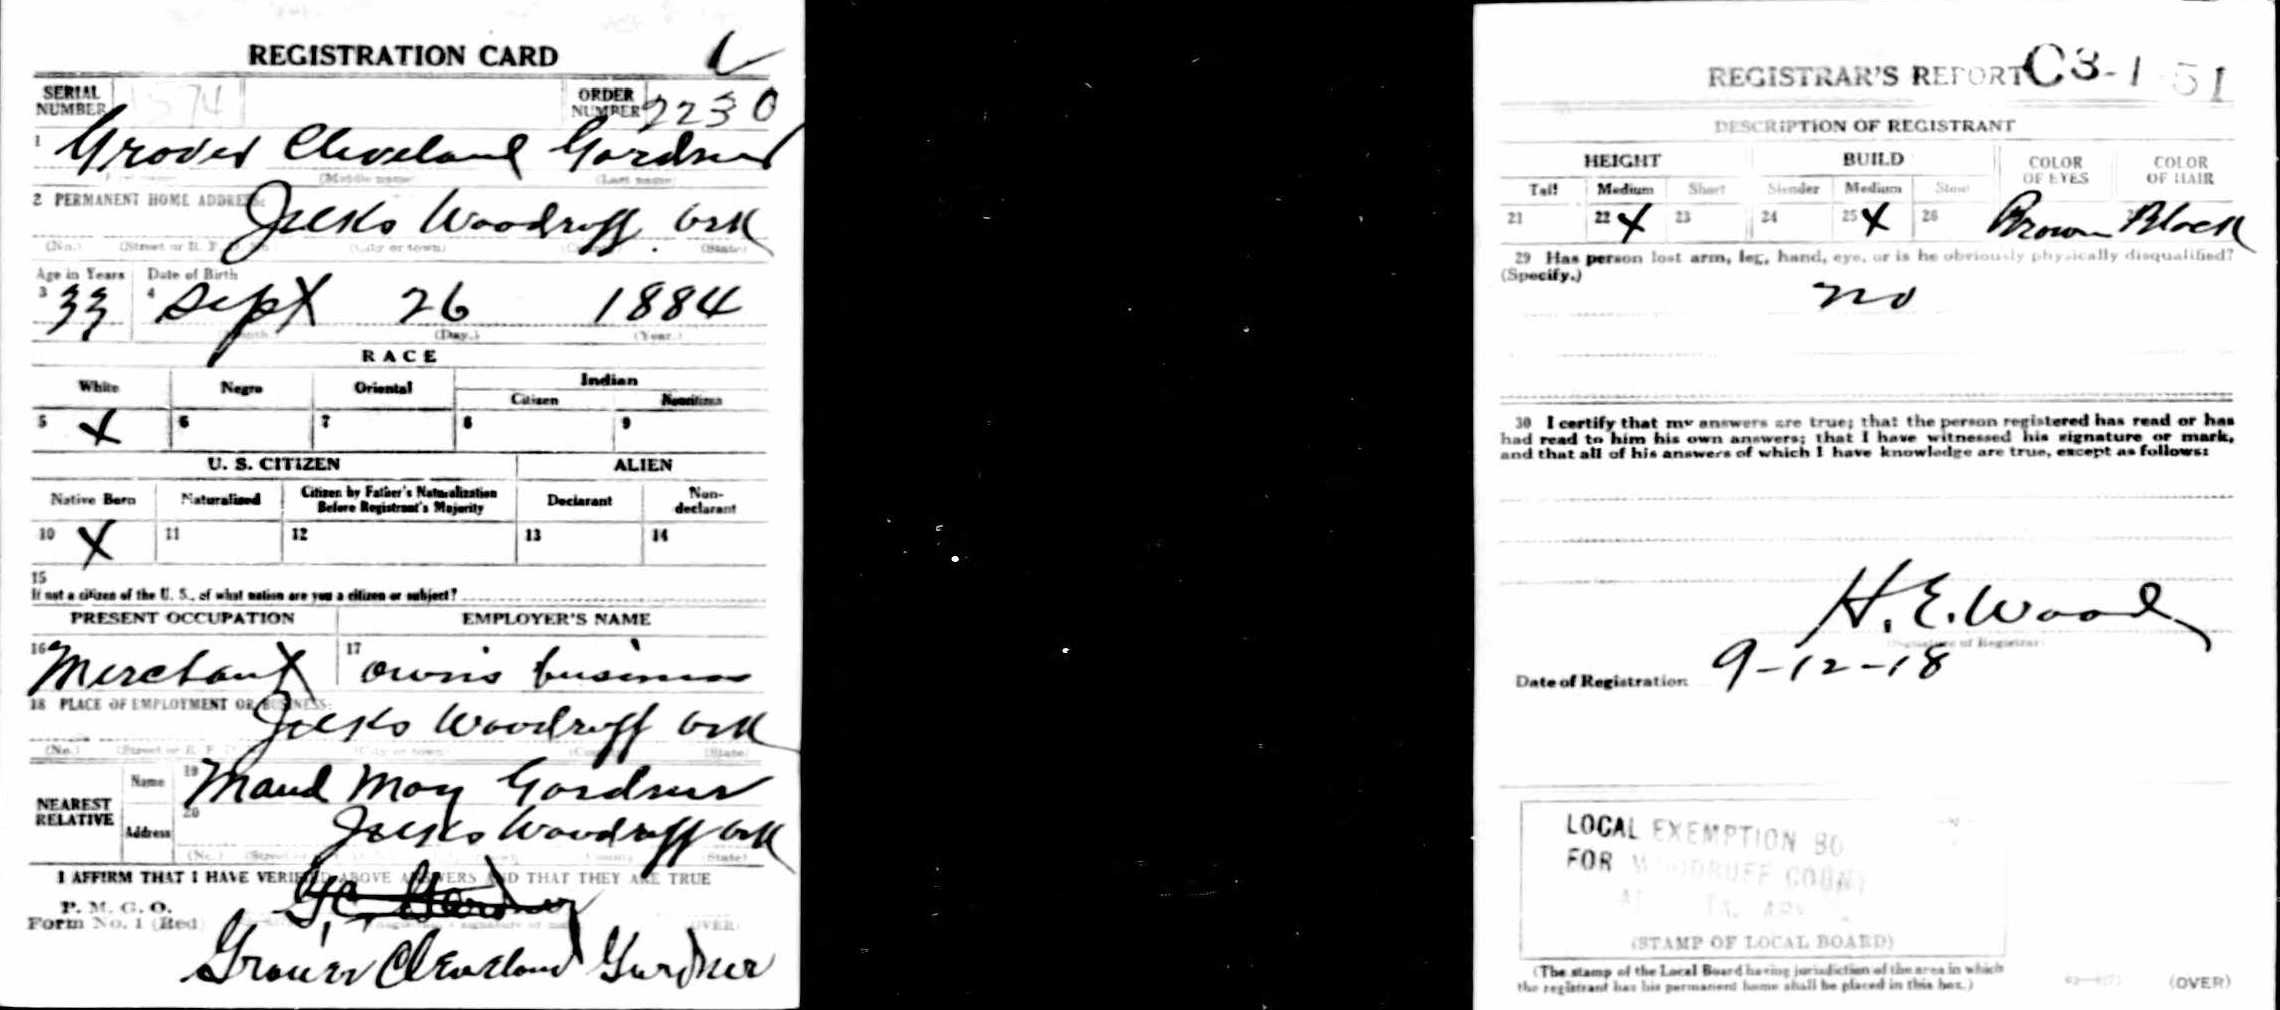 REGISTRATION CARD
SERIAL NUMBER 574
ORDER NUMBER 2230
1 Grover Cleveland Gardner
(Middle name) (Last name)
2 PERMANENT HOME ADDRESS:
Jelks Woodruff. Ark
(No.) (Street or R. F. D. No.) (City or town) (County) (State)
Age in Years Date of Birth
3 33 4 Sept 26 1884
(Month.) (Day.) (Year.)
RACE
White Negro Oriental Indian
Citizen Noncitizen
5 X 6 7 8 9
U. S. CITIZEN ALIEN
Native Born Naturalized Citizen by Father's Naturalization Before Registrant's Majority Declarant Non-declarant
10 X 11 12 13 14
15
If not a citizen of the U. S., of what nation are you a citizen or subject?
PRESENT OCCUPATION EMPLOYER'S NAME
16 Merchant 17 owns business
18 PLACE OF EMPLOYMENT OR BUSINESS:
Jelks Woodruff Ark
(No.) (Street or R. F. D. No.) (City or town) (County) (State)
NEAREST RELATIVE
Name 19 Maud May Gardner
Address 20 Jelks Woodruff Ark
(No.) (Street (State)
I AFFIRM THAT I HAVE VERIFIED ABOVE ANSWERS AND THAT THEY ARE TRUE
P. M. G. O.
Form No. 1 (Red) G.C. Gardner (OVER)
Grover Cleveland Gardner
REGISTRAR'S REPORT C3-1 51
DESCRIPTION OF REGISTRANT
HEIGHT BUILD COLOR OF EYES COLOR OF HAIR
Tall Medium Short Slender Medium Stout
21 22 X 23 24 25 X 26 Brown Black
29 Has person lost arm, leg, hand, eye, or is he obviously physically disqualified?
(Specify.)
no
30 I certify that my answers are true; that the person registered has read or has
had read to him his own answers; that I have witnessed his signature or mark,
and that all of his answers of which I have knowledge are true, except as follows:
H. E. Wood
(Signature of Registrar)
Date of Registration 9-12-18
LOCAL EXEMPTION BO
FOR WOODRUFF COUNT
AT
(STAMP OF LOCAL BOARD)
(The stamp of the Local Board having jurisdiction of the area in which
the registrant has his permanent home shall be placed in this box.)
(OVER)